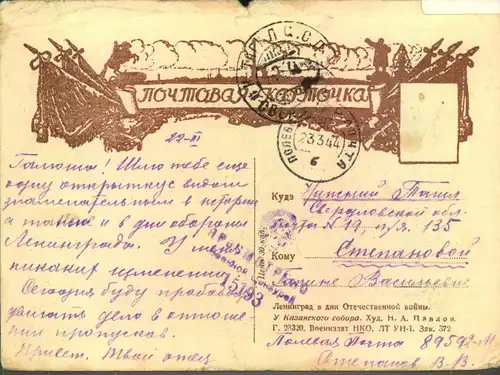 ПОЧТОВАЯ КАРТОЧКА
ПОЛЕВАЯ ПОЧТА
23.3.44
б
22-III
Галюша! Шлю тебе еще
одну открытку с видом
знаменательным в истории
а также и в дни обороны
Ленинграда. У меня
никаких изменений.
Сегодня буду пробовать
двигать дело в отноше-
нии пропусков.
Привет. Твой отец
15193
Цена 30 коп.
Куда Нижний Тагил
Свердловской обл.
почта № 19, п/я. 135
Кому Степановой
Галине Васильевне
Ленинград в дни Отечественной войны.
У Казанского собора. Худ. Н. А. Павлов.
Г. 23320, Военниздат НКО, ЛТ УН-1. Зак. 372
Полевая Почта 89592-М
Степанов В.В.